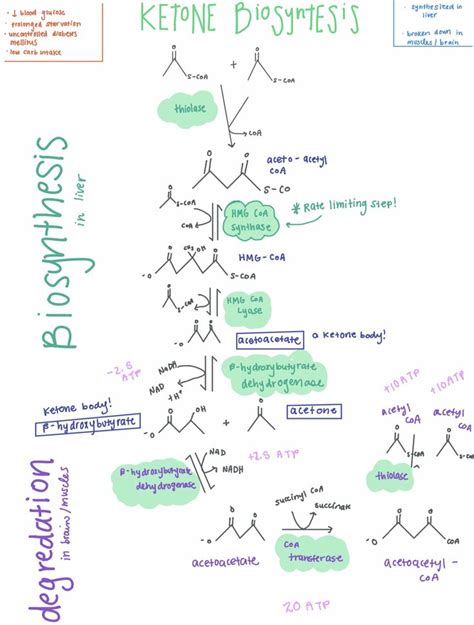 KETONE BIOSYNTESIS
• ↓ blood glucose
• prolonged starvation
• uncontrolled diabetes
mellitus
• low carb intake
• synthesized in
liver
• broken down in
muscles / brain
Biosynthesis
in liver
O
O
S-COA
+
S-COA
thiolase
COA
O
O
aceto-acetyl
COA
S-CO
O
S-COA
COA
HMG COA
synthase
* Rate limiting step!
O
CH3 OH
O
-O
S-COA
HMG-COA
O
S-COA
HMG COA
Lyase
-O
acetoacetate
a ketone body!
-2.5
ATP
NADH
NAD
+H+
β-hydroxybutyrate
dehydrogenase
Ketone body!
β-hydroxybutyrate
O
OH
-O
+
O
acetone
+10ATP
+10ATP
acetyl
COA
acetyl
COA
O
O
S-COA
S-COA
thiolase
degredation
in brain/muscles
β-hydroxybutyrate
dehydrogenase
NAD
NADH
+2.5 ATP
succinyl COA
succinate
O
O
-O
acetoacetate
COA
transferase
O
O
-O
COA
acetoacetyl-
COA
20 ATP